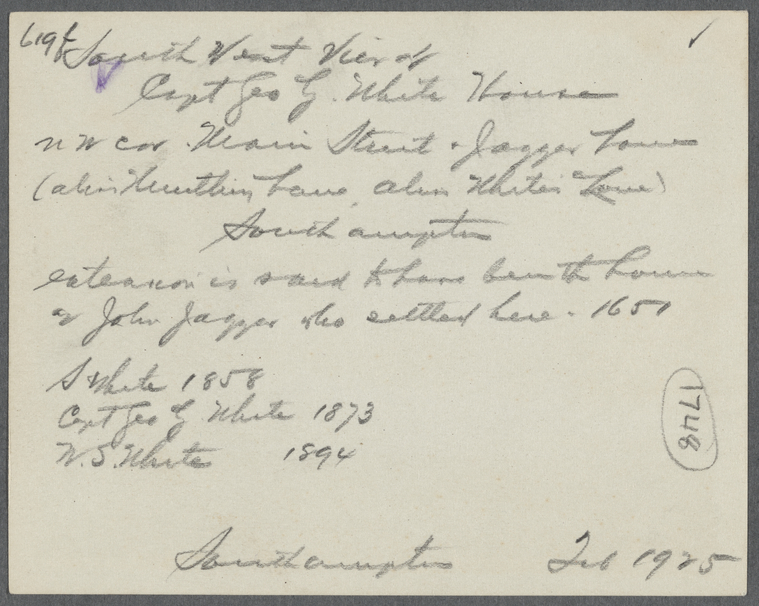 619f South West View of
Capt Geo G. White House
n w cor. Main Street & Jagger Lane
(alias Lane alias White's Lane)
Southampton
extension is said to have been the house
of John Jagger who settled here - 1651
S White 1858
Capt Geo G White 1873
W. S. White 1894
1748
Southampton Feb 1925